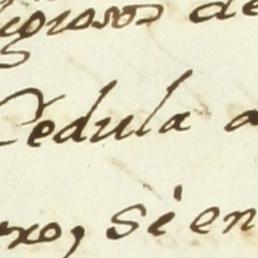 igiosos de
Cedula a
ero, sien